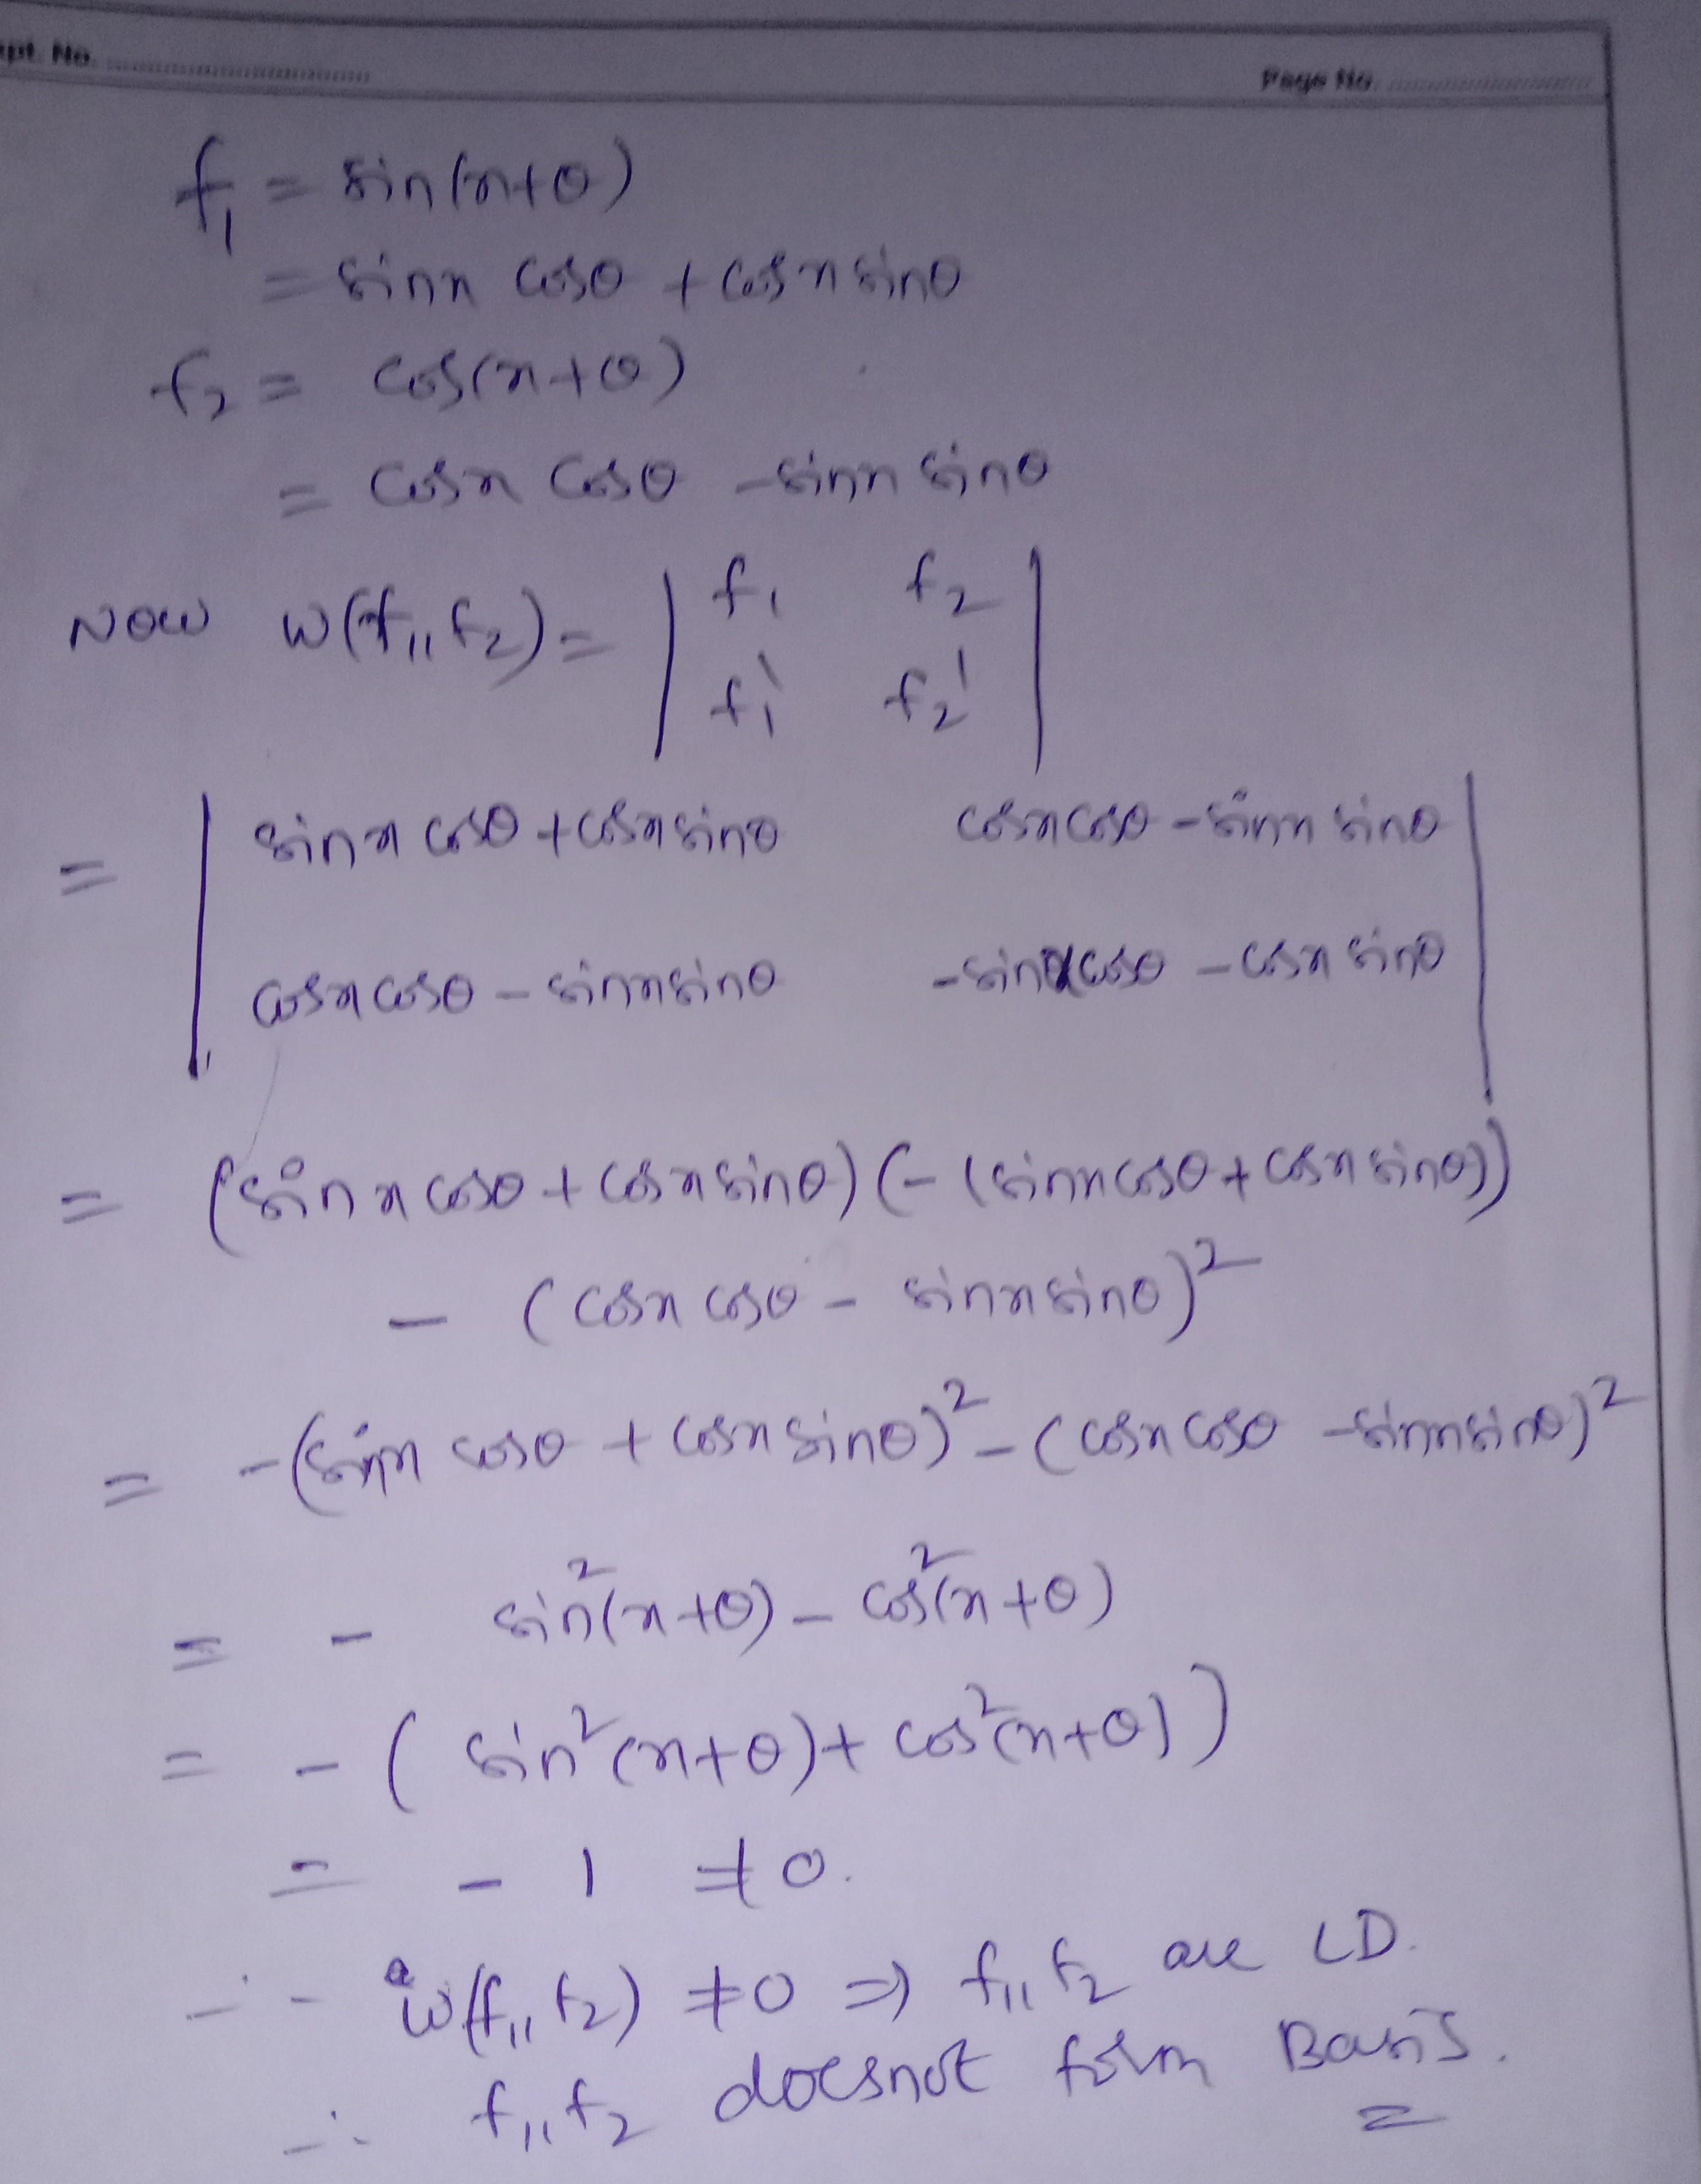 Expt. No. ............................
Page No. ............................
f₁ = sin(x+θ)
= sinx cosθ + cosx sinθ
f₂ = cos(x+θ)
= cosx cosθ - sinx sinθ
Now W(f₁, f₂) = | f₁ f₂ |
| f₁' f₂' |
= | sinx cosθ + cosx sinθ cosx cosθ - sinx sinθ |
| cosx cosθ - sinx sinθ -sinx cosθ - cosx sinθ |
= (sinx cosθ + cosx sinθ) (- (sinx cosθ + cosx sinθ))
- (cosx cosθ - sinx sinθ)²
= -(sinx cosθ + cosx sinθ)² - (cosx cosθ - sinx sinθ)²
= - sin²(x+θ) - cos²(x+θ)
= - ( sin²(x+θ) + cos²(x+θ) )
= - 1 ≠ 0.
∴ W(f₁, f₂) ≠ 0 ⇒ f₁, f₂ are LD.
∴ f₁, f₂ doesnot form Basis.